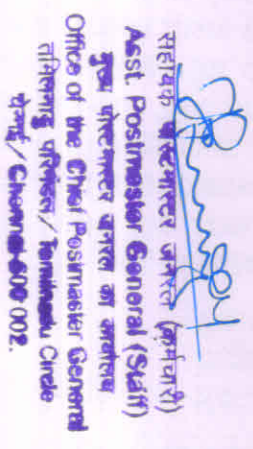 सहायक पोस्टमास्टर जनरल (कर्मचारी)
Asst. Postmaster General (Staff)
मुख्य पोस्टमास्टर जनरल का कार्यालय
Office of the Chief Postmaster General
तमिलनाडु परिमंडल / Tamilnadu Circle
चेन्नई / Chennai-600 002.